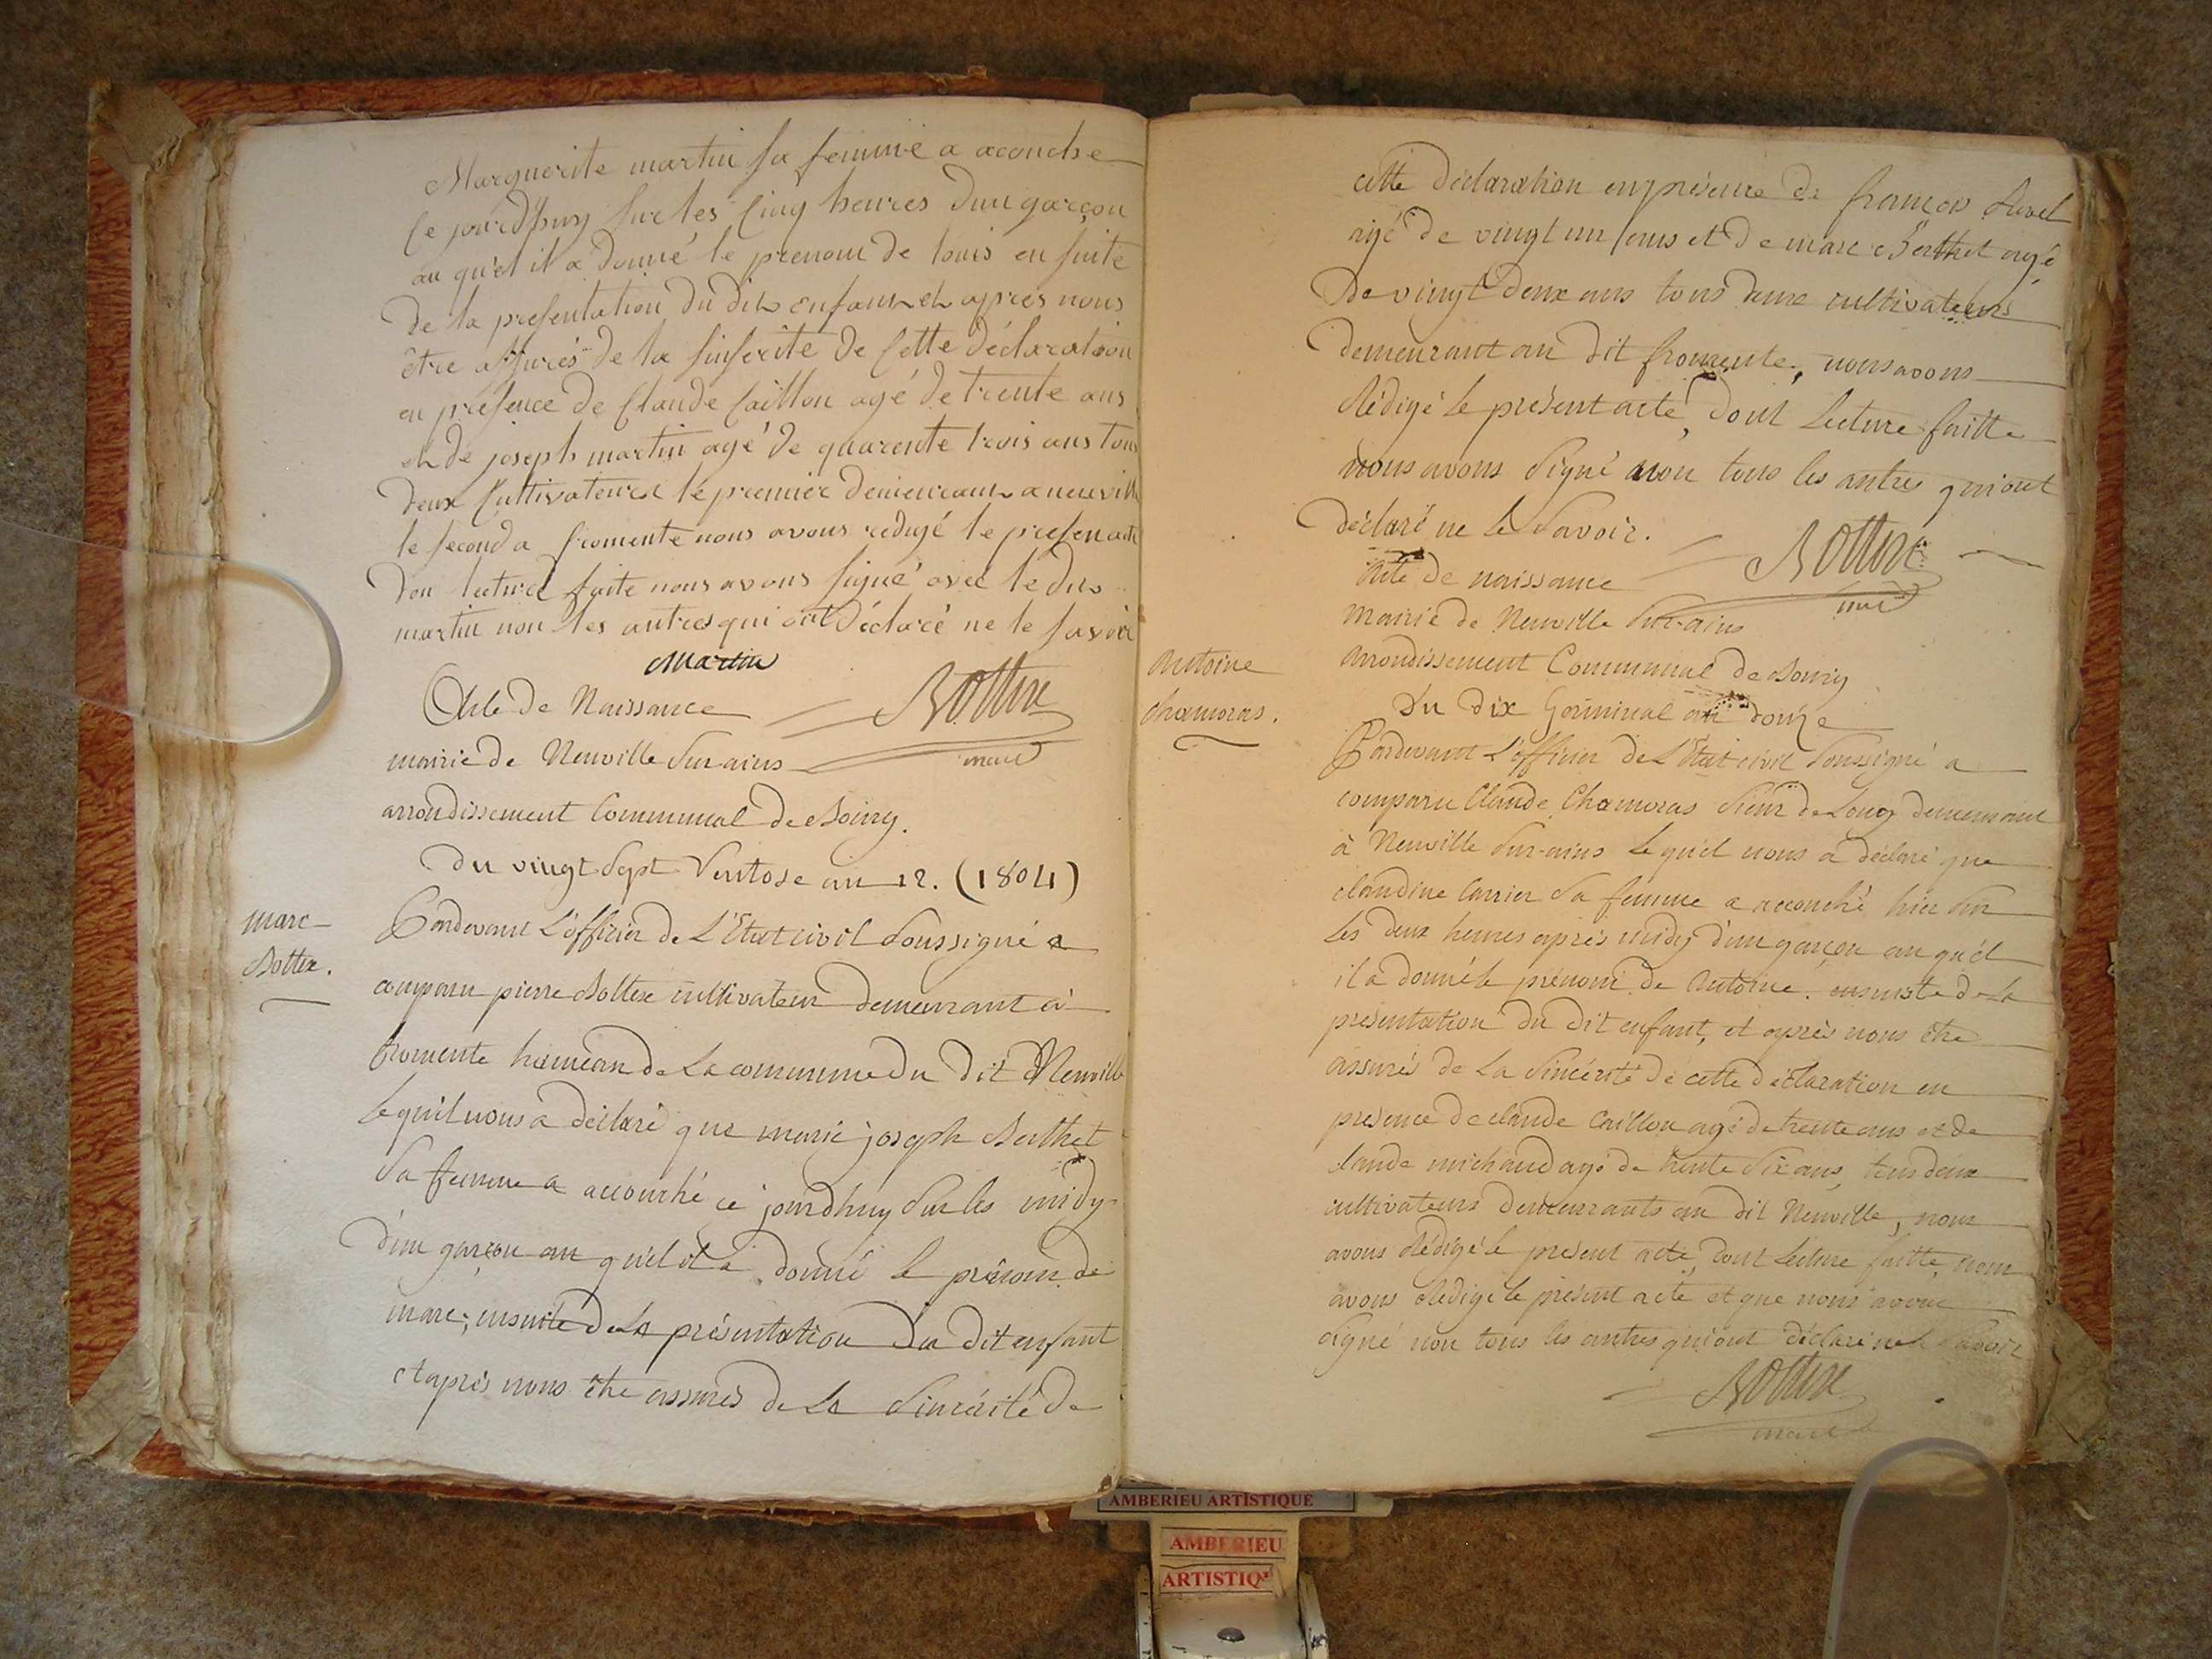 Marguerite martin sa femme a acouche
ce jourdhuy sur les cinq heures dun garçon
au qu'el il a donné le prenom de louis en suite
de la presentation du dit enfant et apres nous
être assurés de la sinserite de cette déclaration
en presence de Claude Caillon agé de trente ans
et de joseph martin agé de quarente trois ans tous
deux Cultivateurs le premier demeurant a neuville
le second a fromente nous avons redigé le present acte
don lecture faite nous avons signé avec le dit
martin non les autres qui ont déclaré ne le savoir
Martin
Acte de Naissance
Bottex
maire
mairie de Neuville Sur-ains
arrondissement Communal de Bourg.
Du vingt Sept Ventose an 12. (1804)
marc
Bottex.
Pardevant L'officier de L'Etat civil Soussigné a
comparu pierre Bottex cultivateur demeurant à
fromente hameau de La commune du dit Neuville
Lequ'el nous a déclaré que marie joseph Berthet
Sa femme a accouché ce jourdhuy Sur les midy
d'un garçon au qu'el il a donné le prénom de
marc, ensuite de La présentation du dit enfant
et après nous être assurés de La Sincérité de
cette déclaration en présence de francois
agé de vingt un ans et de marc Berthet agé
de vingt deux ans tous deux cultivateurs
demeurant au dit fromente, nous avons
Rédigé le présent acte, dont Lecture faitte
nous avons Signé non tous les autres qui ont
déclaré ne le Savoir.
Bottex
maire
Acte de naissance
Mairie de Neuville Sur-ains
Arrondissement Communal de Bourg
Antoine
Chamoras.
Du dix Germinal an douze
Pardevant L'officier de L'Etat civil Soussigné a
comparu Claude Chamoras Sieur de Long demeurant
à Neuville Sur-ains Lequ'el nous a déclaré que
claudine Carrier Sa femme a accouché hier Sur
Les deux heures après midy d'un garçon au qu'el
il a donné le prénom de Antoine. ensuiste de La
présentation du dit enfant, et après nous être
assurés de La Sincérité de cette déclaration en
présence de claude Caillon agé de trente ans et de
claude michaud agé de trente Six ans, tous deux
cultivateurs demeurants au dit Neuville, nous
avons Rédigé le présent acte, dont Lecture faitte, nous
avons Rédigé le présent acte et que nous avons
Signé non tous les autres qui ont déclaré ne le Savoir
Bottex
maire
AMBERIEU ARTISTIQUE
AMBERIEU
ARTISTIQ